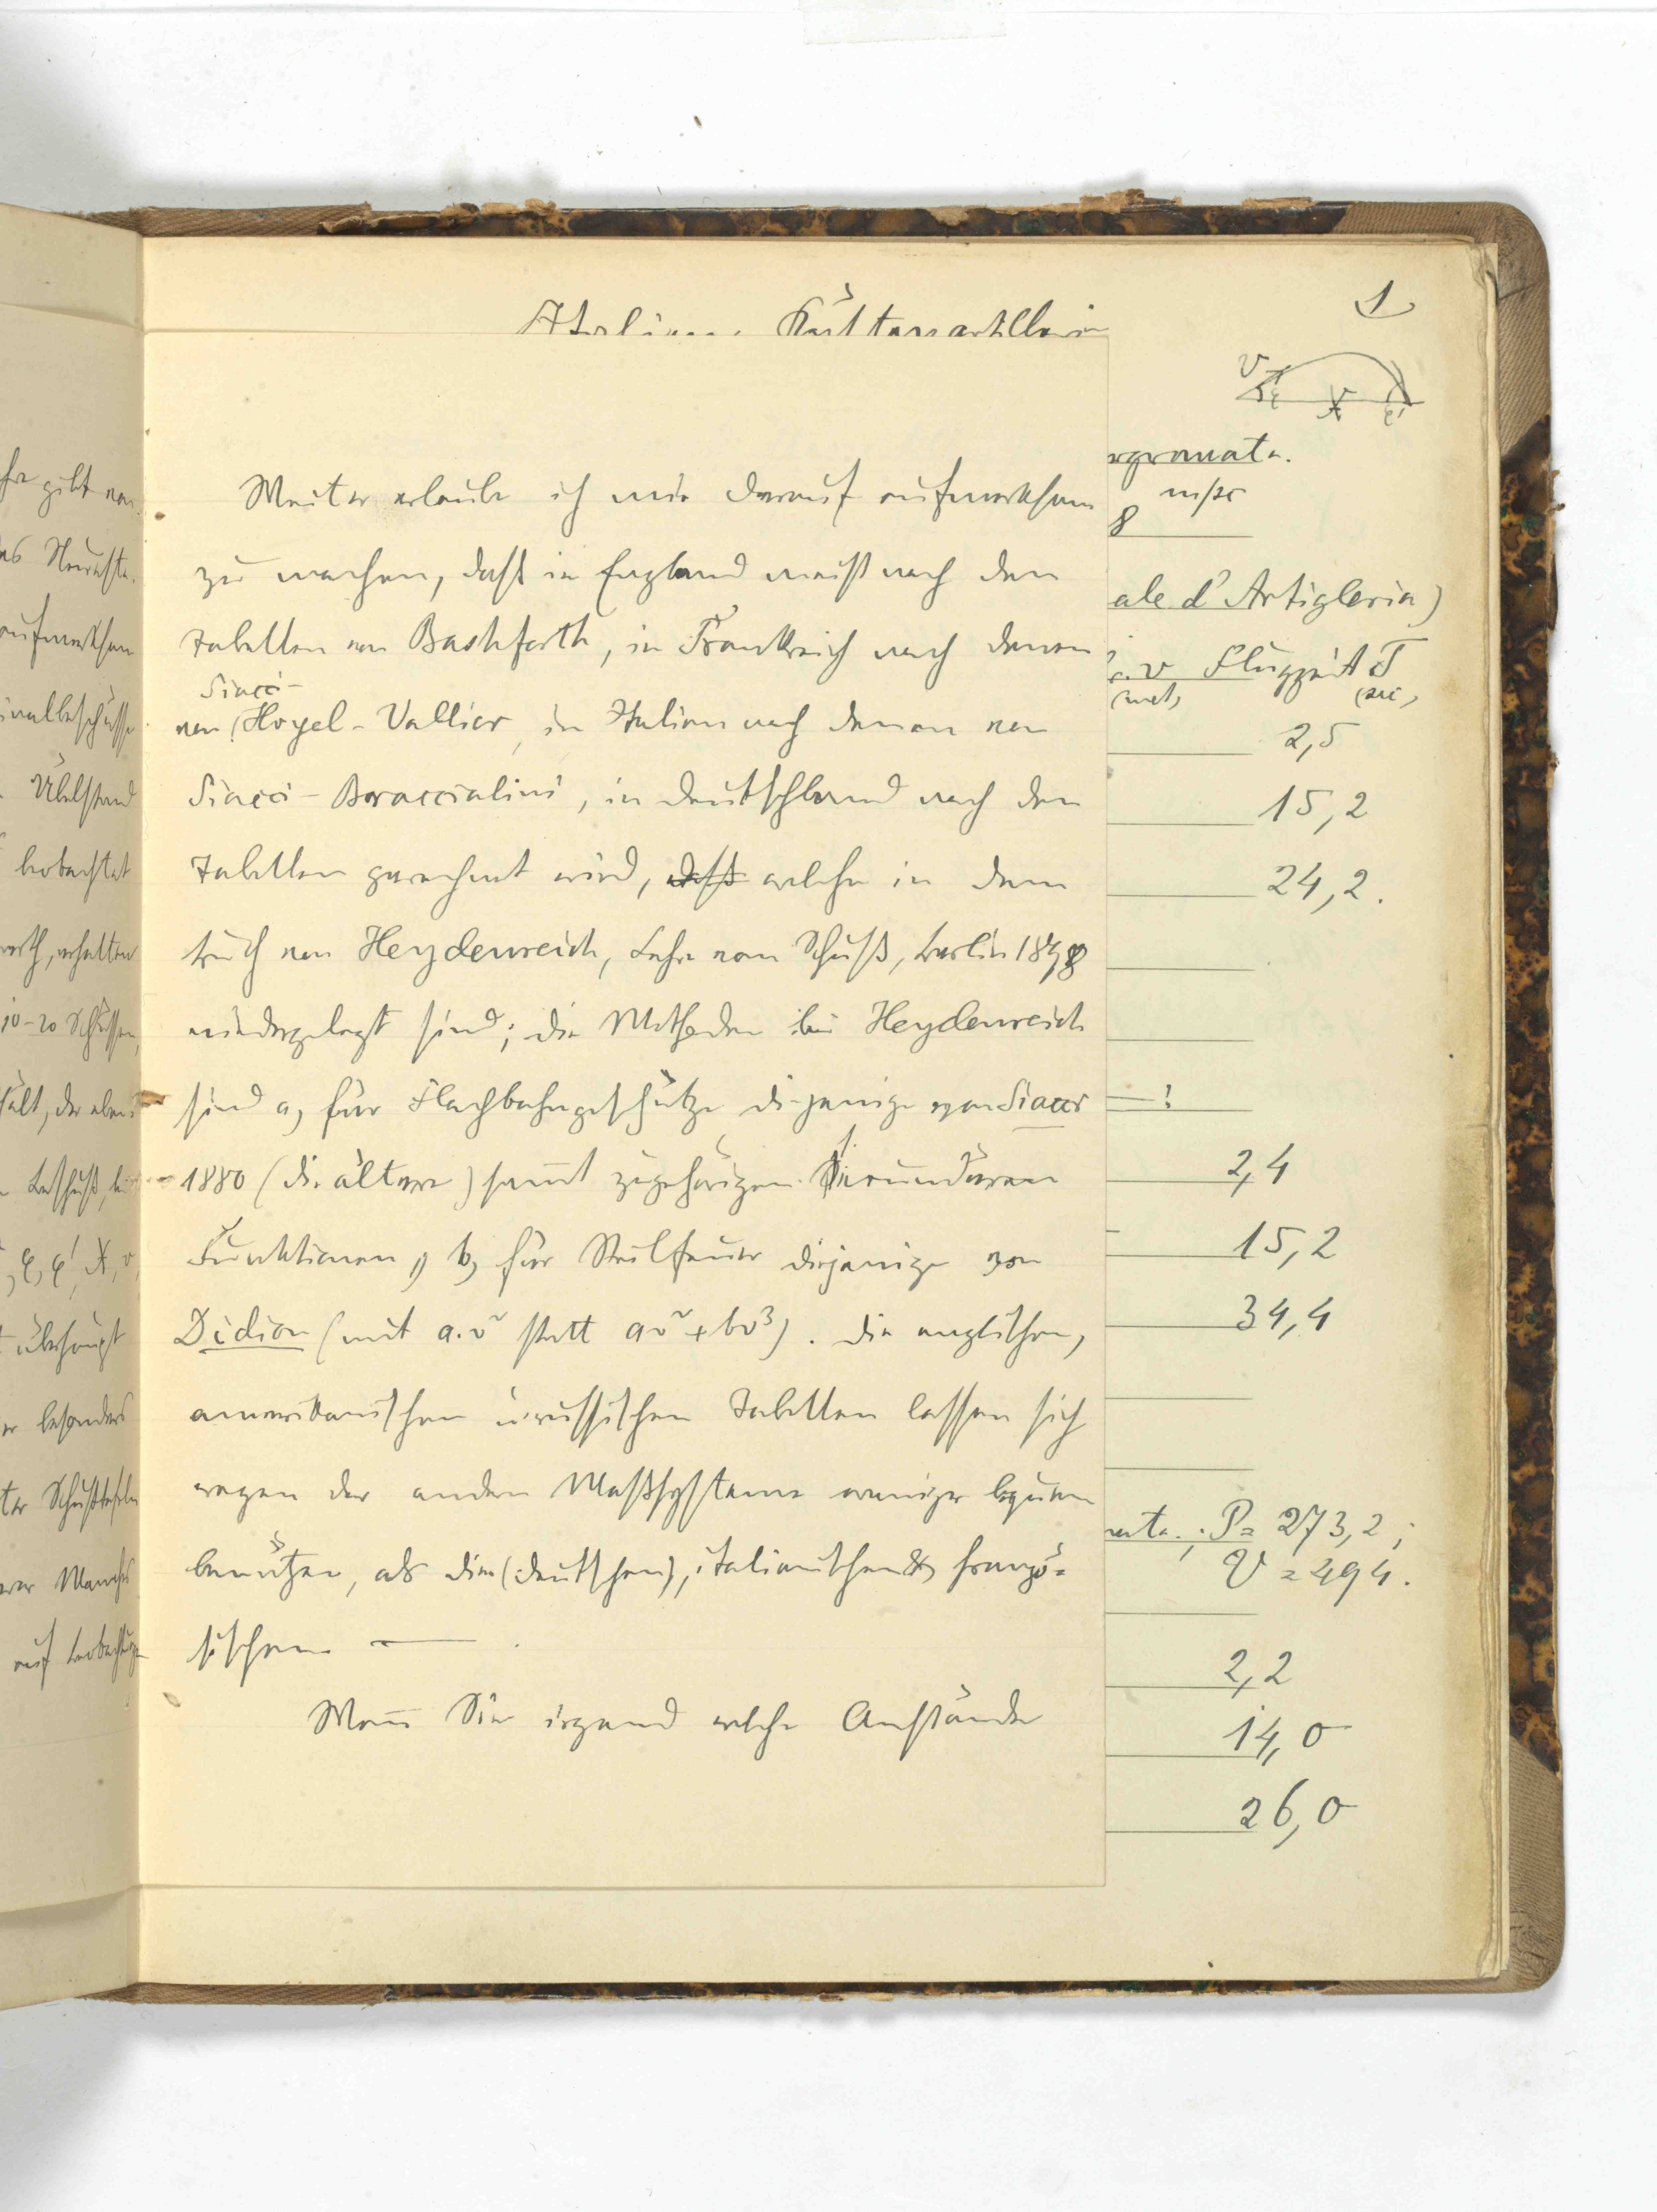 1
Italien. Küstenartillerie
V φ X φ'
Weiter erlaube ich mir darauf aufmerksam
zu machen, daß in England meist nach den
Tabellen von Bashforth, in Frankreich nach denen
Siacci-
von Hojel-Vallier, in Italien nach denen von
Siacci-Braccialini, in Deutschland nach den
Tabellen gerechnet wird, daß welche in dem
Buch von Heydenreich, Lehre vom Schuß, Berlin 1898
niedergelegt sind; die Methoden bei Heydenreich
sind a, für Flachbahngeschütze diejenige von Siacci
1880 (die ältere) samt zugehörigen sekundären
Funktionen, b, für Steilfeuer diejenige von
Didion (mit a.v² statt av²+bv³). Die englischen,
amerikanischen u. russischen Tabellen lassen sich
wegen der andern Maßsysteme weniger bequem
benützen, als die (deutschen), italienischen & franzö=
sischen —.
Wenn Sie irgend welche Anstände
rgranate.
8 m/sec
ale d'Artiglieria)
v Flugzeit T
(met) (sec)
2,5
15,2
24,2.
— !
2,4
15,2
34,4
nate; P= 273,2;
V = 494.
2,2
14,0
26,0
fre gibt
das Neueste.
aufmerksam
Übelstand
beobachtet
worth, erhalten
10-20 Schüssen,
φ, φ', X, v,
überhaupt
er besonders
ter Schußtafeln
auf Beobachtungen